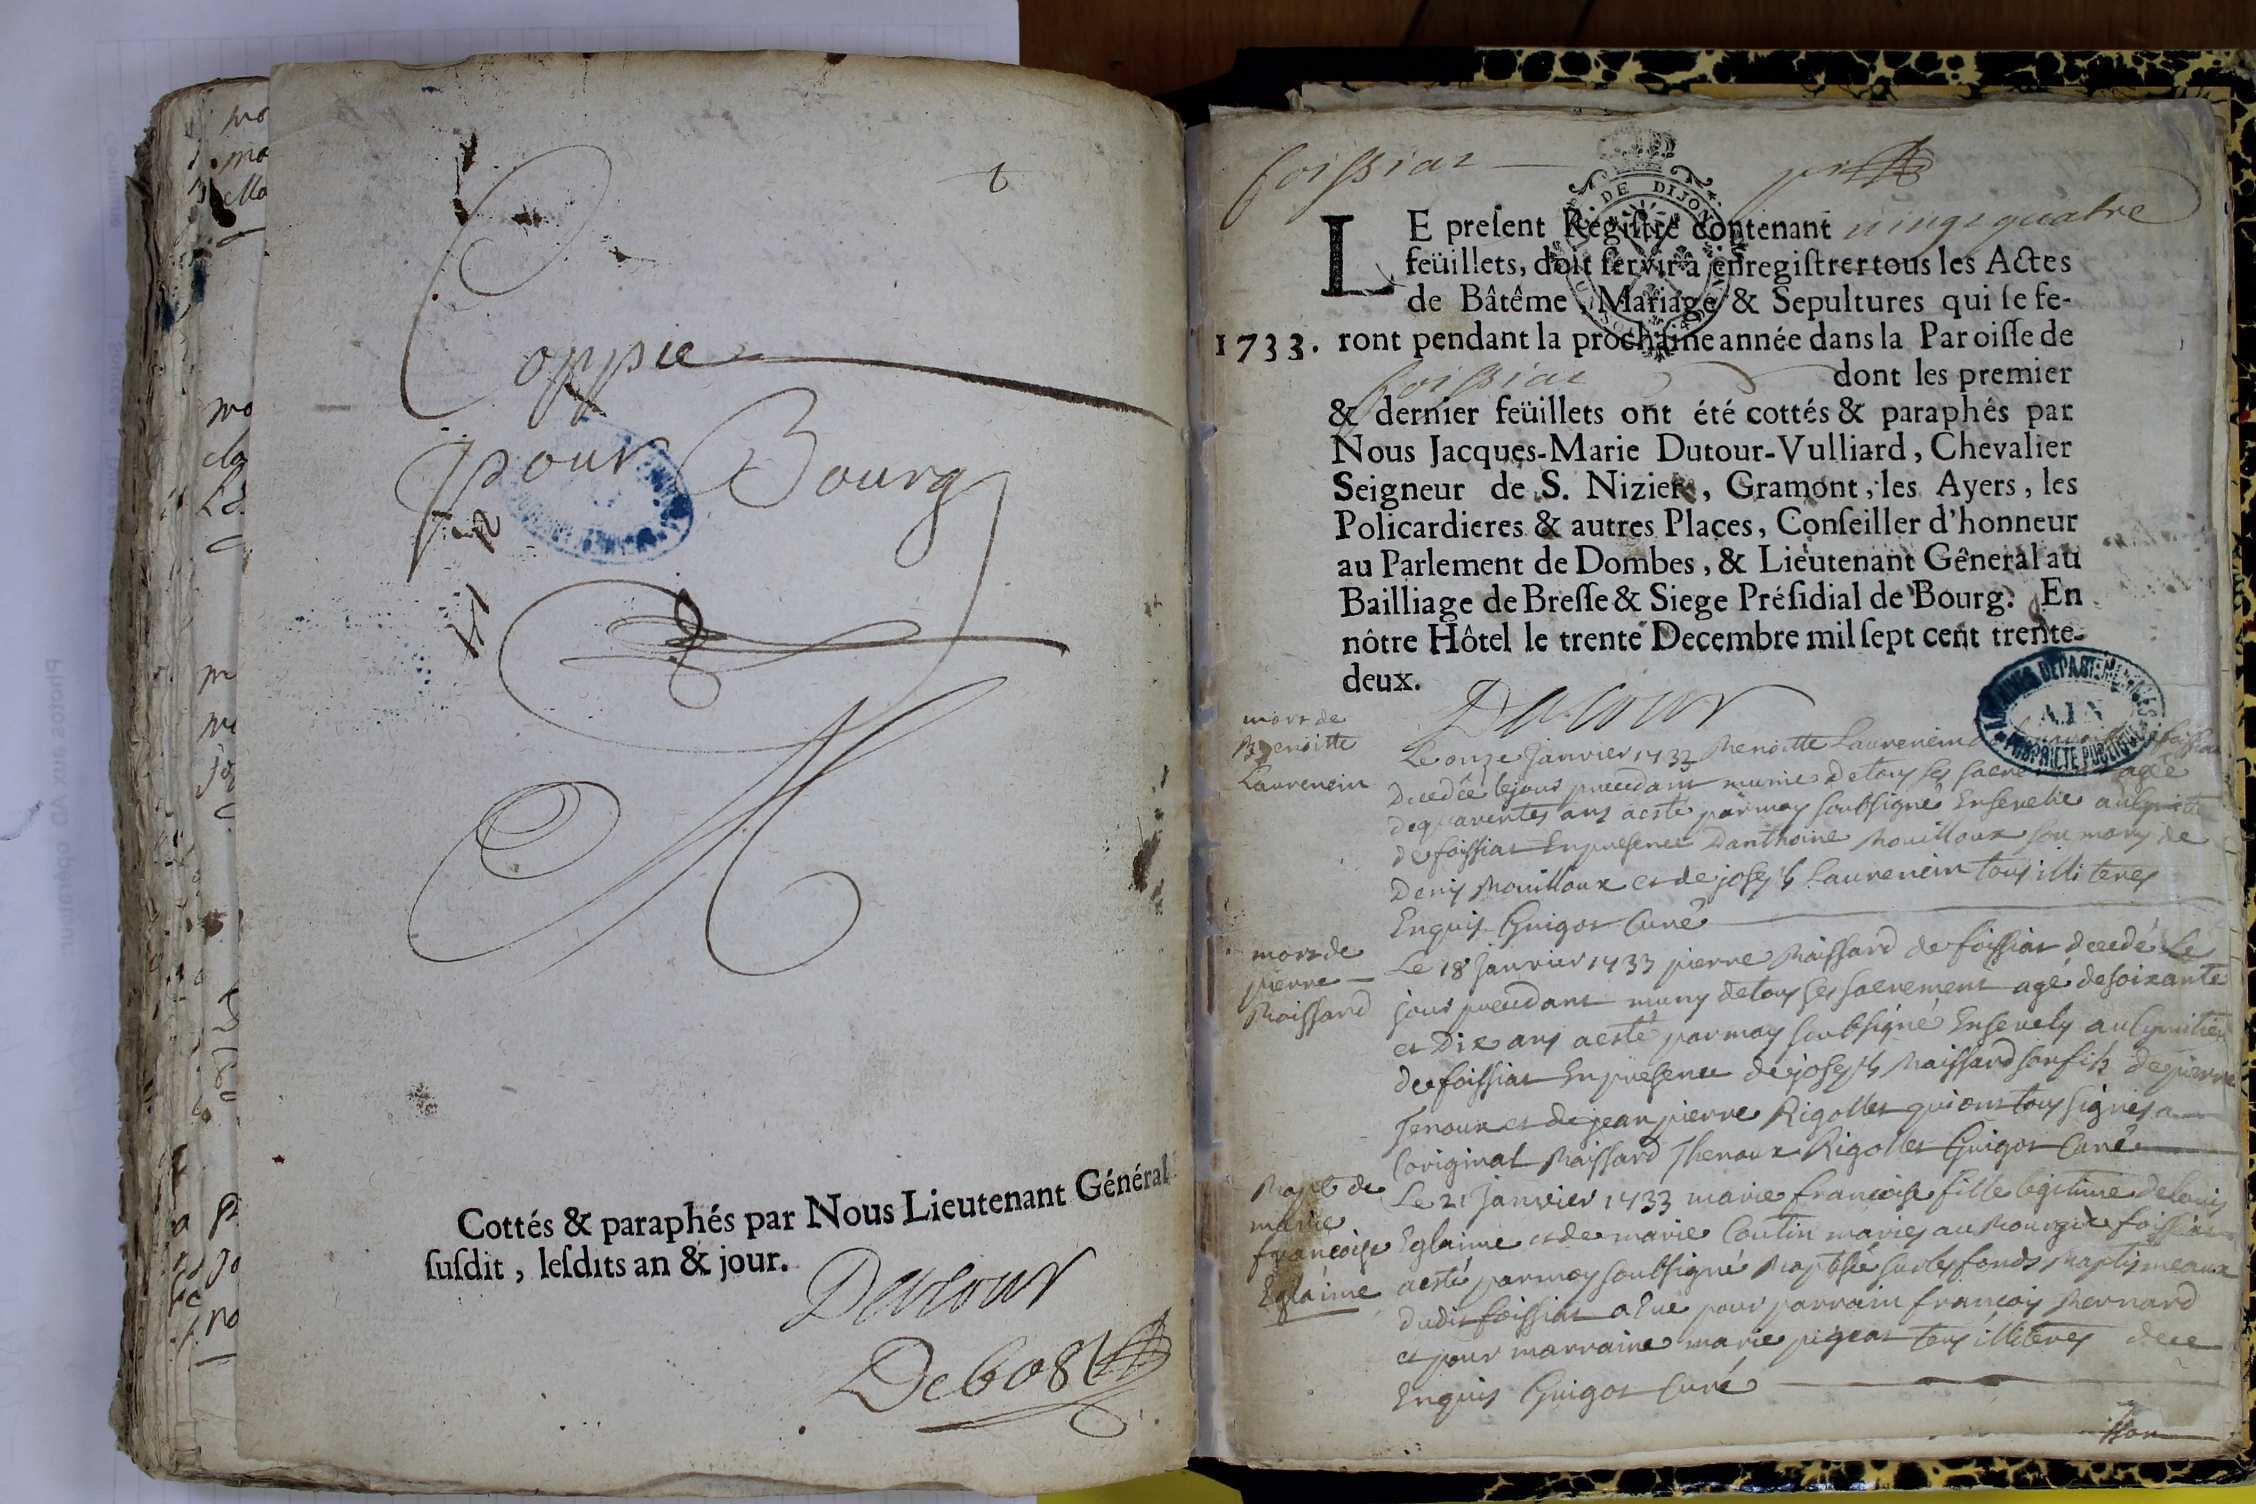 Coppie
pour Bourg
Cottés & paraphés par Nous Lieutenant Général
ſuſdit, leſdits an & jour.
Dutour
Debost
foissiat
LE preſent Regiſtre contenant vingt quatre
feüillets, doit ſervir à enregiſtrer tous les Actes
de Bâtême, Mariage & Sepultures qui ſe fe-
1733. ront pendant la prochaine année dans la Paroiſſe de
foissiat dont les premier
& dernier feüillets ont été cottés & paraphés par
Nous Jacques-Marie Dutour-Vulliard, Chevalier
Seigneur de S. Nizier, Gramont, les Ayers, les
Policardieres & autres Places, Conſeiller d'honneur
au Parlement de Dombes, & Lieutenant Gêneral au
Bailliage de Breſſe & Siege Préſidial de Bourg. En
nôtre Hôtel le trente Decembre mil ſept cent trente-
deux.
Dutour
ARCHIVES DEPARTEMENTALES
AIN
PROPRIETE PUBLIQUE
mort de
Benoitte
Laurencin
Le onze Janvier 1733 Benoitte Laurencin
Decedée le jour precedant munie de tous ses sacre agée
de quarentes ans a esté par moy soubsigné Ensevelie au
de foissiat En presence Danthoine Mouilloux son mary de
Denis Mouilloux et de joseph Laurencin tous illiteres
Enquis Guigot Curé
mort de
pierre
Maissard
Le 18 Janvier 1733 pierre Maissard de foissiat decedé Le
jour precedant muny de tous ses sacrement agé de soixante
et Dix ans a esté par moy soubsigné Ensevely au
de foissiat En presence de joseph Maissard son fils de pierre
Jenoux et de jean pierre Rigollet qui ont tous signes a
l'original Maissard Thenoux Rigollet Guigot Curé
Bapt de
marie
françoise
Eglaine
Le 21 Janvier 1733 marie françoise fille legitime de louis
Eglaine et de marie Coutin mariés au Bourg de foissiat
a esté par moy soubsigné Baptisée sur les fonds Baptismeaux
dudit foissiat a Eue pour parrain françois Bernard
et pour marraine marie pigeat tous illiteres de ce
Enquis Guigot Curé